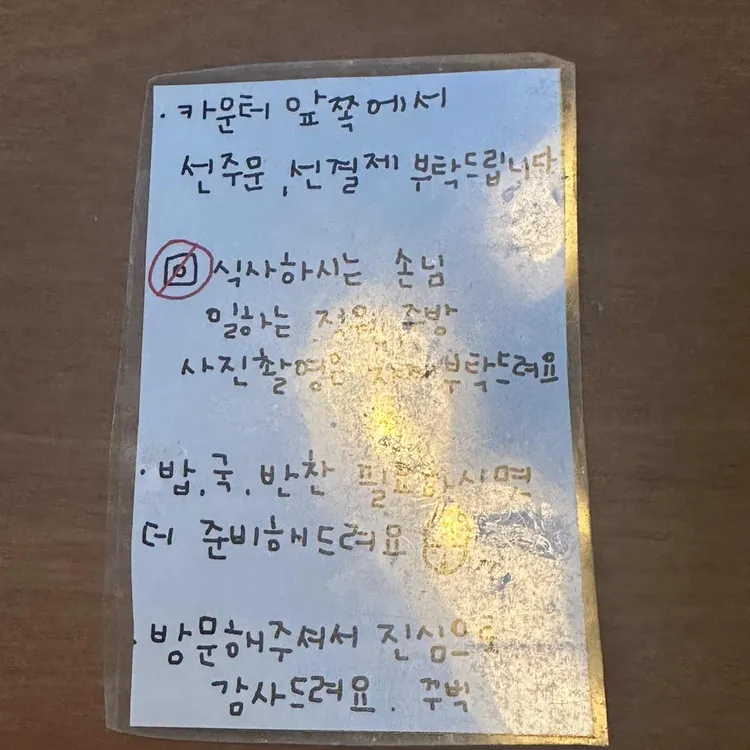 · 카운터 앞쪽에서
선주문, 선결제 부탁드립니다
식사하시는 손님
일하는 직원, 주방
사진촬영은 부탁드려요
· 밥, 국, 반찬 필요하시면
더 준비해드려요
· 방문해주셔서 진심으로
감사드려요. 꾸벅